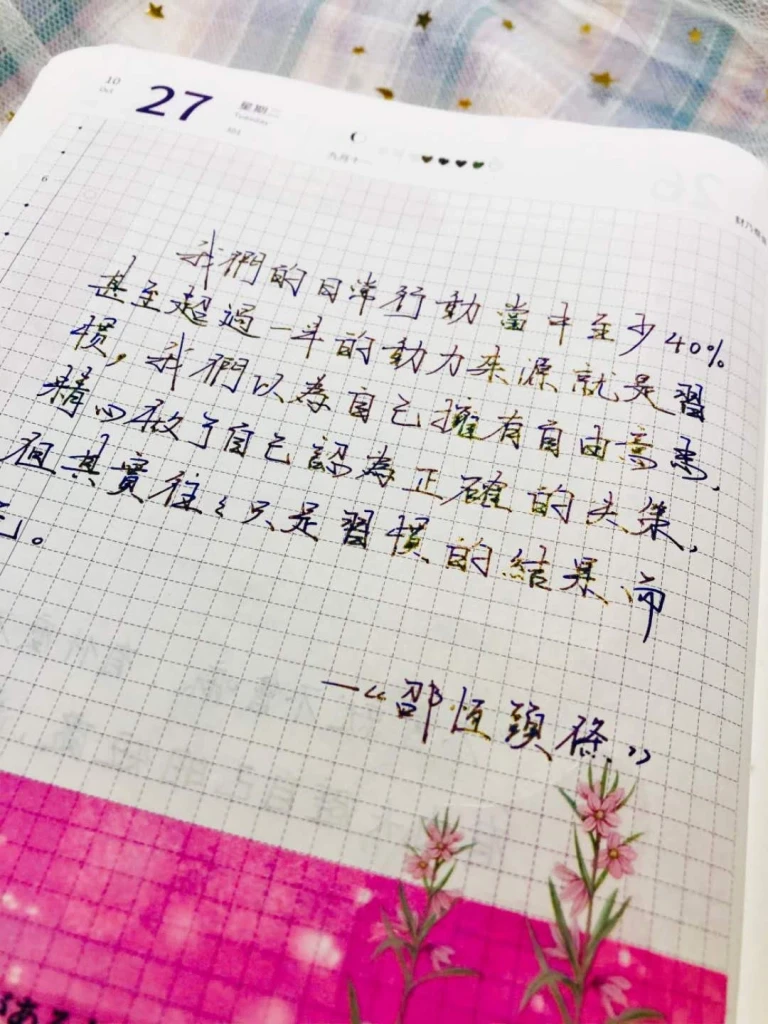 10
Oct
27
星期二
Tuesday
301
九月十一
我們的日常行動當中至少40%
甚至超過一半的動力來源就是習
慣,我們以為自己擁有自由意志,
精心做了自己認為正確的決策,
但其實往々只是習慣的結果而
已。
—“邵恆頭條”